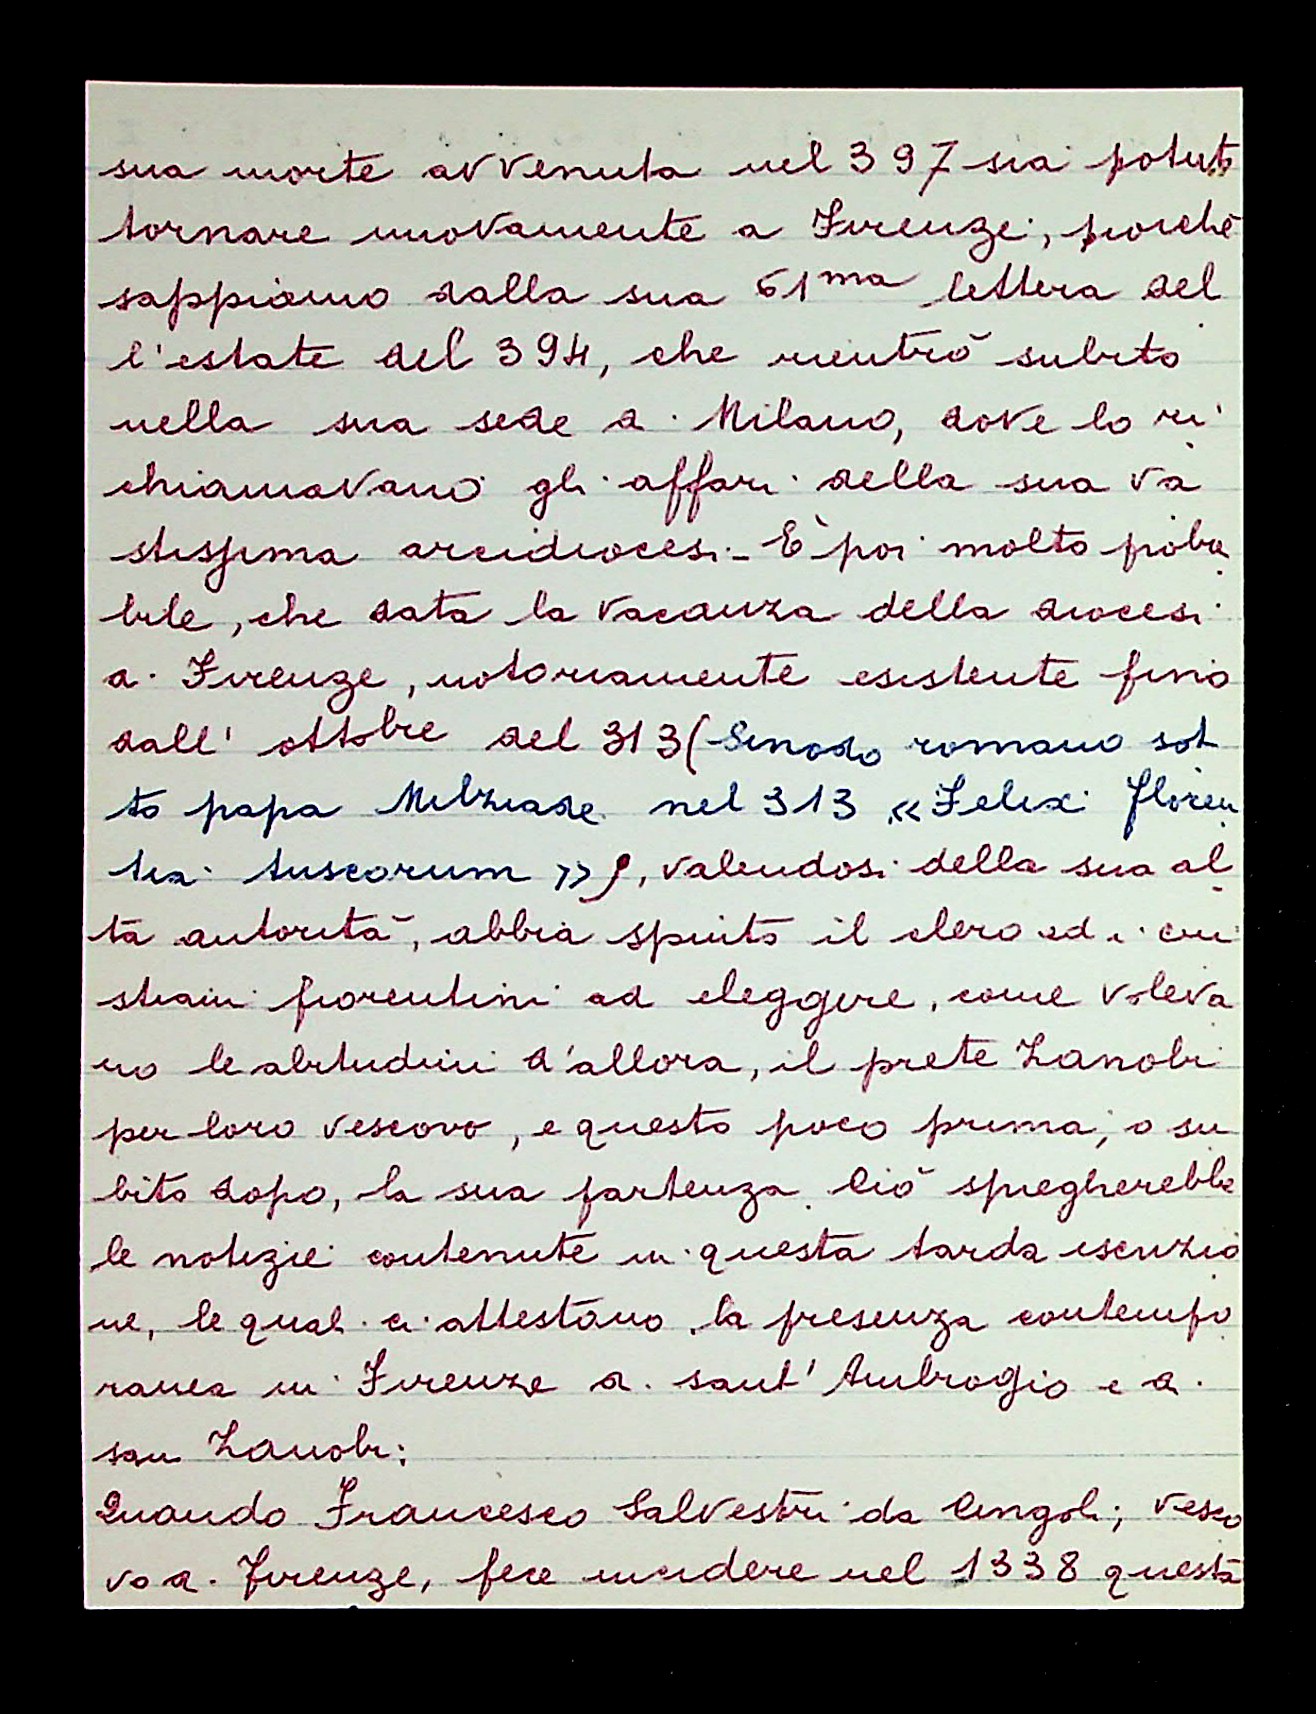 sua morte avvenuta nel 397 sia potuto
tornare nuovamente a Firenze, poiché
sappiamo dalla sua 61ma lettera del
l'estate del 394, che rientrò subito
nella sua sede a Milano, dove lo ri
chiamavano gli affari della sua va
stissima arcidiocesi. È poi molto proba
bile, che data la vacanza della diocesi
a Firenze, notoriamente esistente fino
dall' ottobre del 313 (Sinodo romano sot
to papa Milziade nel 313 «Felix floren
tia tuscorum»), valendosi della sua al
ta autorità, abbia spinto il clero ed i cri
stiani fiorentini ad eleggere, come voleva
no le abitudini d'allora, il prete Zanobi
per loro vescovo, e questo poco prima, o su
bito dopo, la sua partenza. Ciò spiegherebbe
le notizie contenute in questa tarda iscrizio
ne, le quali ci attestano la presenza contempo
ranea in Firenze a sant' Ambrogio e a
san Zanobi:
Quando Francesco Salvestri da Cingoli, vesco
vo a Firenze, fece incidere nel 1338 questa